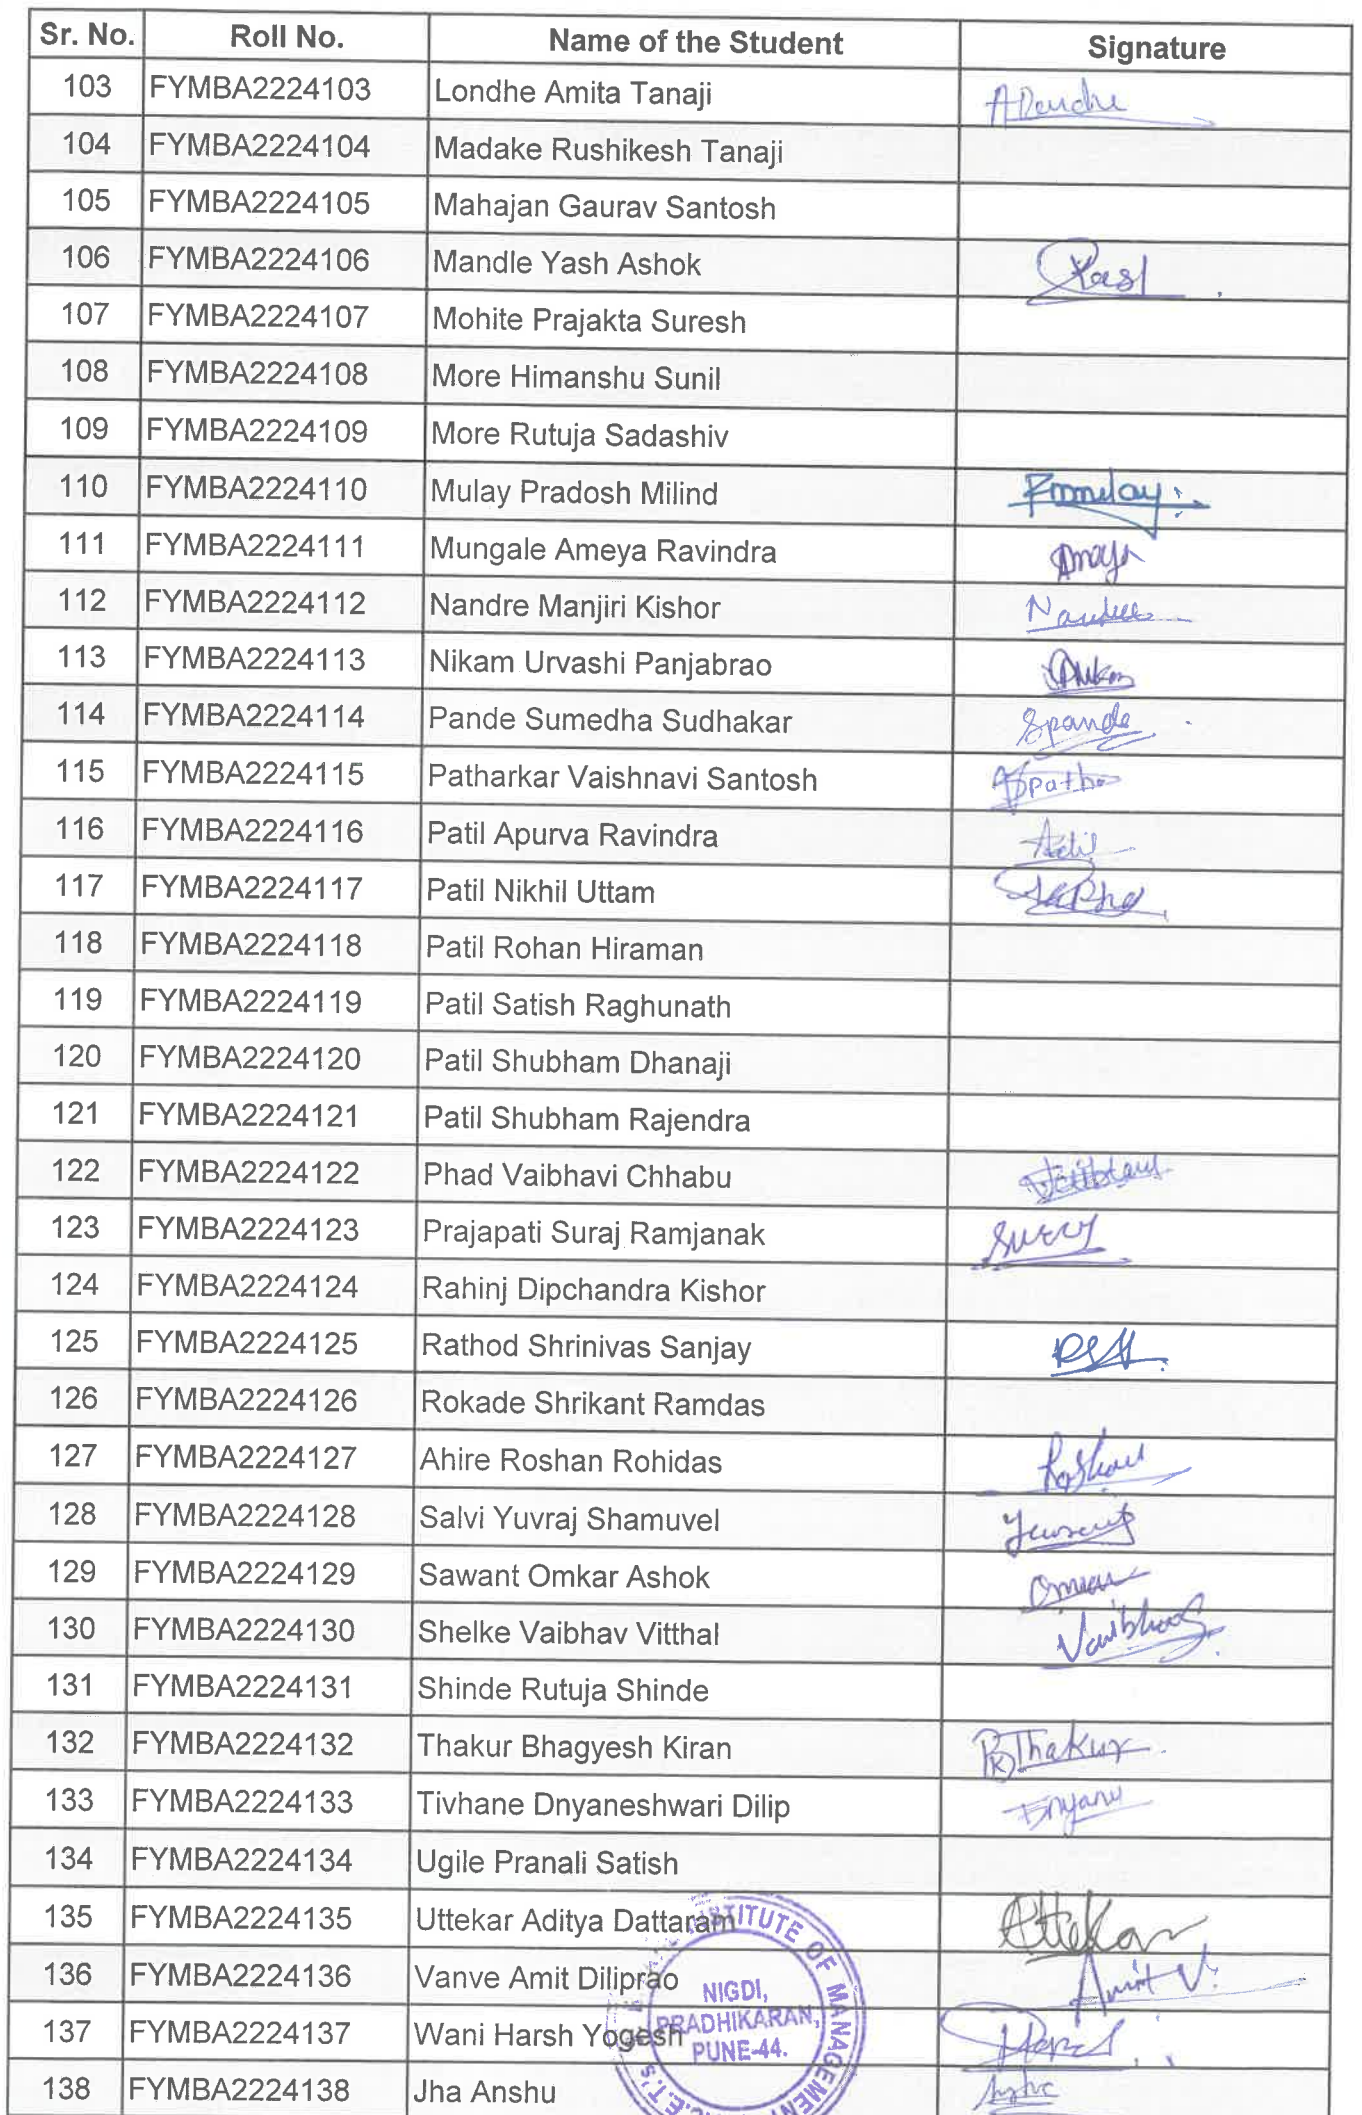 Sr. No. Roll No. Name of the Student Signature
103 FYMBA2224103 Londhe Amita Tanaji
104 FYMBA2224104 Madake Rushikesh Tanaji
105 FYMBA2224105 Mahajan Gaurav Santosh
106 FYMBA2224106 Mandle Yash Ashok
107 FYMBA2224107 Mohite Prajakta Suresh
108 FYMBA2224108 More Himanshu Sunil
109 FYMBA2224109 More Rutuja Sadashiv
110 FYMBA2224110 Mulay Pradosh Milind
111 FYMBA2224111 Mungale Ameya Ravindra
112 FYMBA2224112 Nandre Manjiri Kishor
113 FYMBA2224113 Nikam Urvashi Panjabrao
114 FYMBA2224114 Pande Sumedha Sudhakar Spande
115 FYMBA2224115 Patharkar Vaishnavi Santosh
116 FYMBA2224116 Patil Apurva Ravindra
117 FYMBA2224117 Patil Nikhil Uttam
118 FYMBA2224118 Patil Rohan Hiraman
119 FYMBA2224119 Patil Satish Raghunath
120 FYMBA2224120 Patil Shubham Dhanaji
121 FYMBA2224121 Patil Shubham Rajendra
122 FYMBA2224122 Phad Vaibhavi Chhabu
123 FYMBA2224123 Prajapati Suraj Ramjanak
124 FYMBA2224124 Rahinj Dipchandra Kishor
125 FYMBA2224125 Rathod Shrinivas Sanjay
126 FYMBA2224126 Rokade Shrikant Ramdas
127 FYMBA2224127 Ahire Roshan Rohidas Roshan
128 FYMBA2224128 Salvi Yuvraj Shamuvel
129 FYMBA2224129 Sawant Omkar Ashok
130 FYMBA2224130 Shelke Vaibhav Vitthal Vaibhav
131 FYMBA2224131 Shinde Rutuja Shinde
132 FYMBA2224132 Thakur Bhagyesh Kiran Thakur
133 FYMBA2224133 Tivhane Dnyaneshwari Dilip
134 FYMBA2224134 Ugile Pranali Satish
135 FYMBA2224135 Uttekar Aditya Dattaram
136 FYMBA2224136 Vanve Amit Diliprao Amit V.
137 FYMBA2224137 Wani Harsh Yogesh
138 FYMBA2224138 Jha Anshu
INSTITUTE OF MANAGEMENT
NIGDI,
PRADHIKARAN,
PUNE-44.